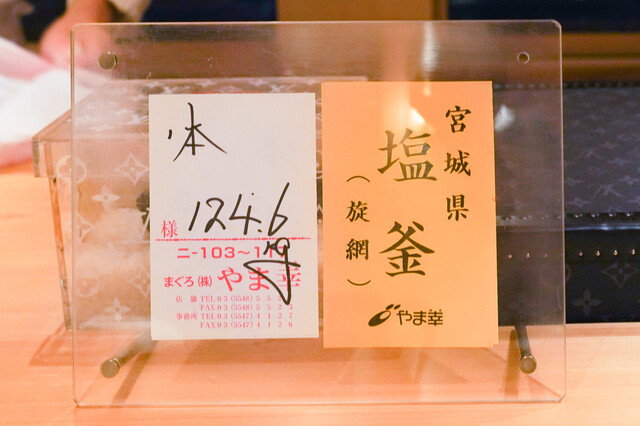 本
様 124.6 kg
ニ-103〜119
まぐろ(株)やま幸
店舗 TEL 03 (5548) 5 5 2
FAX 03 (5548) 5 5 2 5
事務所 TEL 03 (5547) 4 1 2 7
FAX 03 (5547) 4 1 2 6
宮城県
塩釜
(旋網)
やま幸